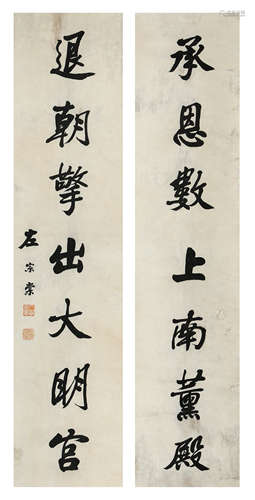 承恩數上南薰殿
退朝擎出大明宮
左宗棠